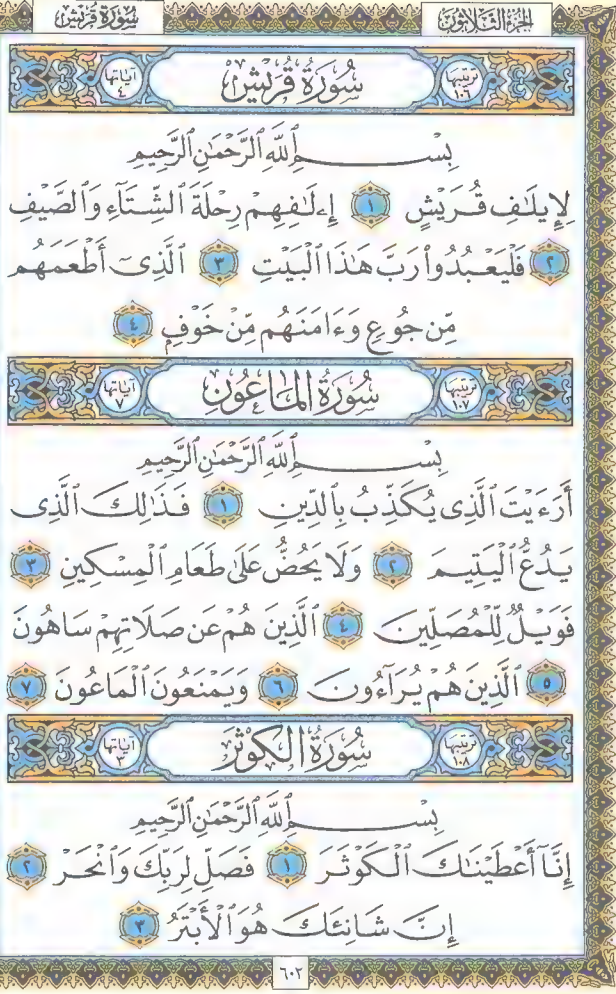 سُورَةُ قُرَيْشٍ
الجُزْءُ الثَّلَاثُونَ
ترتيبها ١٠٦ سُورَةُ قُرَيْشٍ آياتها ٤
بِسْمِ ٱللَّهِ ٱلرَّحْمَٰنِ ٱلرَّحِيمِ
لِإِيلَٰفِ قُرَيْشٍ ١ إِۦلَٰفِهِمْ رِحْلَةَ ٱلشِّتَآءِ وَٱلصَّيْفِ
٢ فَلْيَعْبُدُوا۟ رَبَّ هَٰذَا ٱلْبَيْتِ ٣ ٱلَّذِىٓ أَطْعَمَهُم
مِّن جُوعٍ وَءَامَنَهُم مِّنْ خَوْفٍ ٤
ترتيبها ١٠٧ سُورَةُ المَاعُونِ آياتها ٧
بِسْمِ ٱللَّهِ ٱلرَّحْمَٰنِ ٱلرَّحِيمِ
أَرَءَيْتَ ٱلَّذِى يُكَذِّبُ بِٱلدِّينِ ١ فَذَٰلِكَ ٱلَّذِى
يَدُعُّ ٱلْيَتِيمَ ٢ وَلَا يَحُضُّ عَلَىٰ طَعَامِ ٱلْمِسْكِينِ ٣
فَوَيْلٌ لِّلْمُصَلِّينَ ٤ ٱلَّذِينَ هُمْ عَن صَلَاتِهِمْ سَاهُونَ
٥ ٱلَّذِينَ هُمْ يُرَآءُونَ ٦ وَيَمْنَعُونَ ٱلْمَاعُونَ ٧
ترتيبها ١٠٨ سُورَةُ الكَوْثَرِ آياتها ٣
بِسْمِ ٱللَّهِ ٱلرَّحْمَٰنِ ٱلرَّحِيمِ
إِنَّآ أَعْطَيْنَٰكَ ٱلْكَوْثَرَ ١ فَصَلِّ لِرَبِّكَ وَٱنْحَرْ ٢
إِنَّ شَانِئَكَ هُوَ ٱلْأَبْتَرُ ٣
٦٠٢